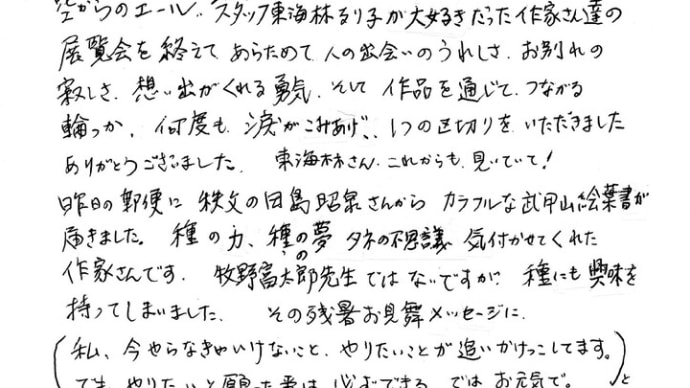 空からのエール、スタッフ東海林るり子が大好きだった作家さん達の
展覧会を終えて、あらためて、人の出会いのうれしさ、お別れの
寂しさ、想い出がくれる勇気、そして作品を通じて、つながる
輪っか、何度も、涙がこみあげ、1つの区切りをいただきました
ありがとうございました。 東海林さん、これからも、見ていて!
昨日の郵便に 秩父の田島昭泉さんから カラフルな武甲山絵葉書が
届きました。種の力、種の夢 タネの不思議 気付かせてくれた
作家さんです。牧野富太郎先生ではないですが、種にも興味を
持ってしまいました。 その残暑お見舞メッセージに、
(私、今やらなきゃいけないこと、やりたいことが追いかけっこしてます。
でも、やりたいと願った事は 必ずできる。では お元気で。)と